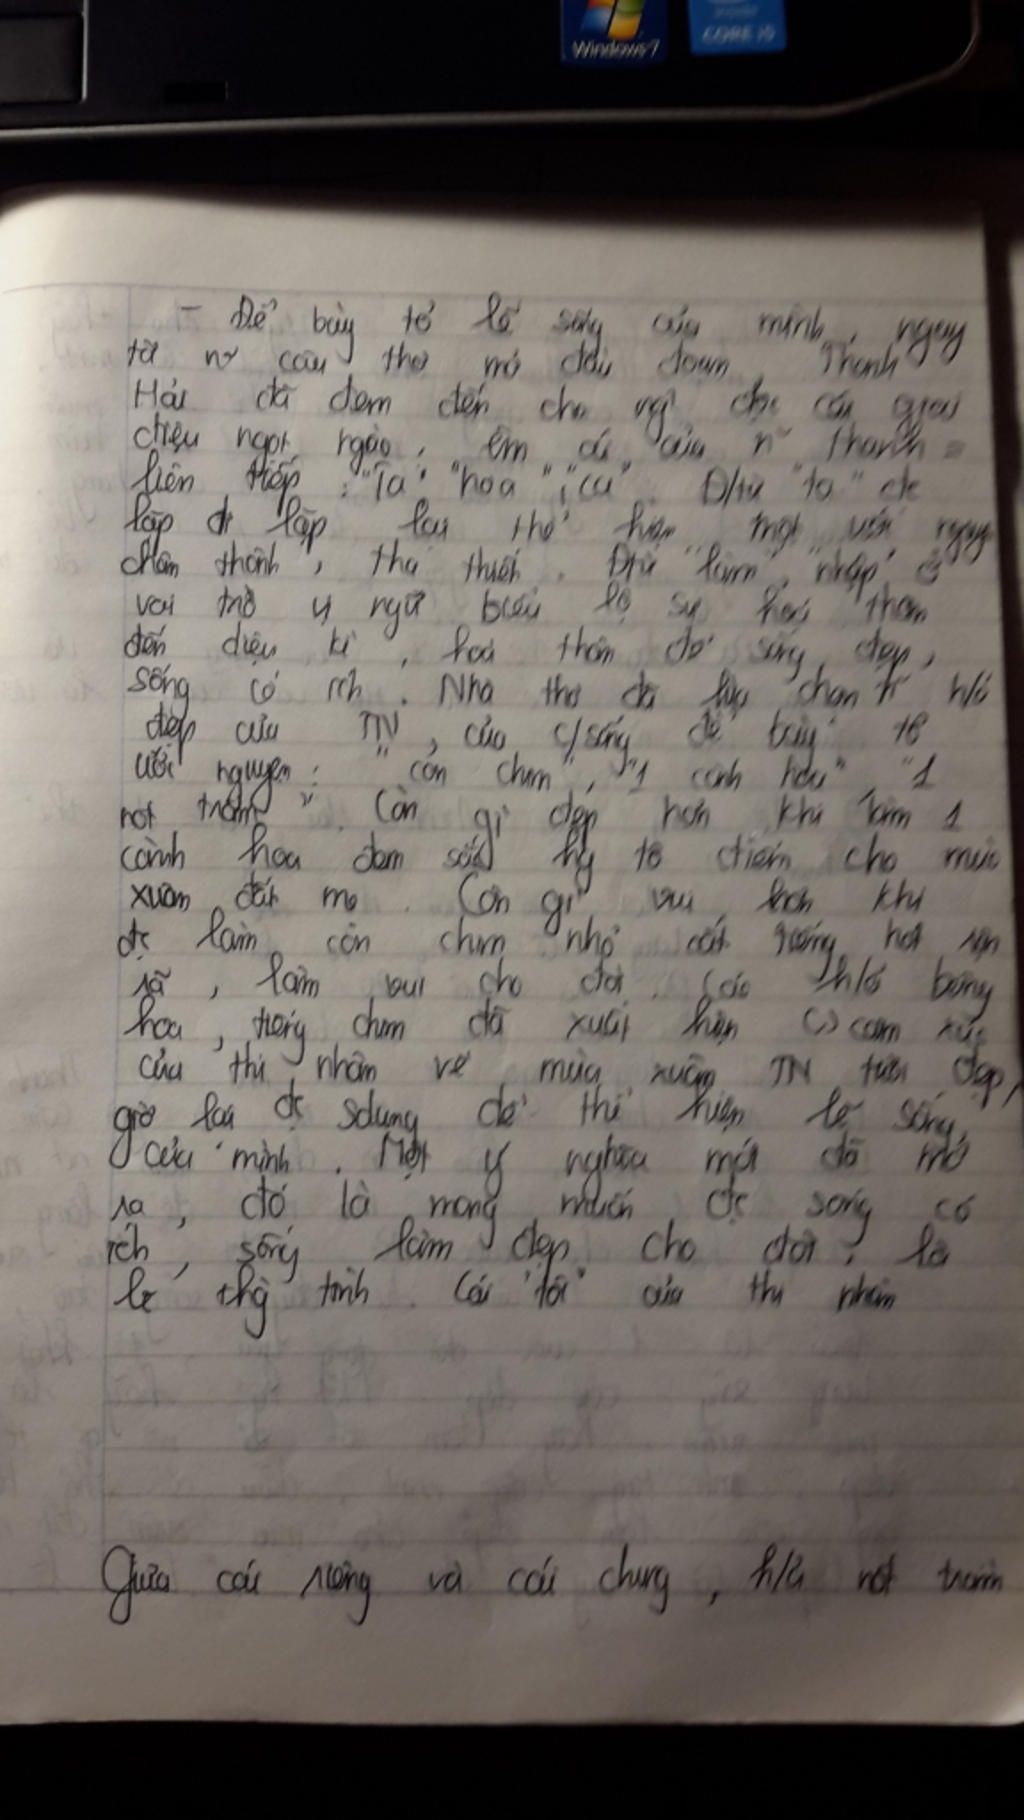 Windows 7
CORE i5
- Để bày tỏ lẽ sống của mình, ngay
từ nh~ câu thơ mở đầu đoạn, Thanh
Hải đã đem đến cho ng` đọc cái giai
điệu ngọt ngào, êm ái của n~ thanh =
liên tiếp : "Ta" "hoa", "ca". Đ/từ "ta" đc
lặp đi lặp lại thể hiện một ước nguyện
chân thành, tha thiết. Đtừ "làm", "nhập" ở
vai trò vị ngữ biểu lộ sự hoá thân
đến diệu kì, hoá thân để sống đẹp,
sống có ích. Nhà thơ đã lựa chọn n~ h/ả
đẹp của TN, của c/sống để bày tỏ
ước nguyện : "con chim", "1 cành hoa" "1
nốt trầm". Còn gì đẹp hơn khi làm 1
cành hoa đem sắc tô điểm cho mùa
xuân đất mẹ. Còn gì vui hơn khi
đc làm con chim nhỏ cất tiếng hót rộn
rã, làm vui cho đời. Các h/ả bông
hoa, tiếng chim đã xuất hiện cảm xúc
của thi nhân về mùa xuân TN tươi đẹp,
giờ lại đc sdụng để thể hiện lẽ sống
của mình. Một ý nghĩa mới đã mở
ra, đó là mong muốn đc sống có
ích, sống làm đẹp cho đời, là
lẽ thg tình. Cái "tôi" của thi nhân
Giữa cái riêng và cái chung, h/ả nốt trầm